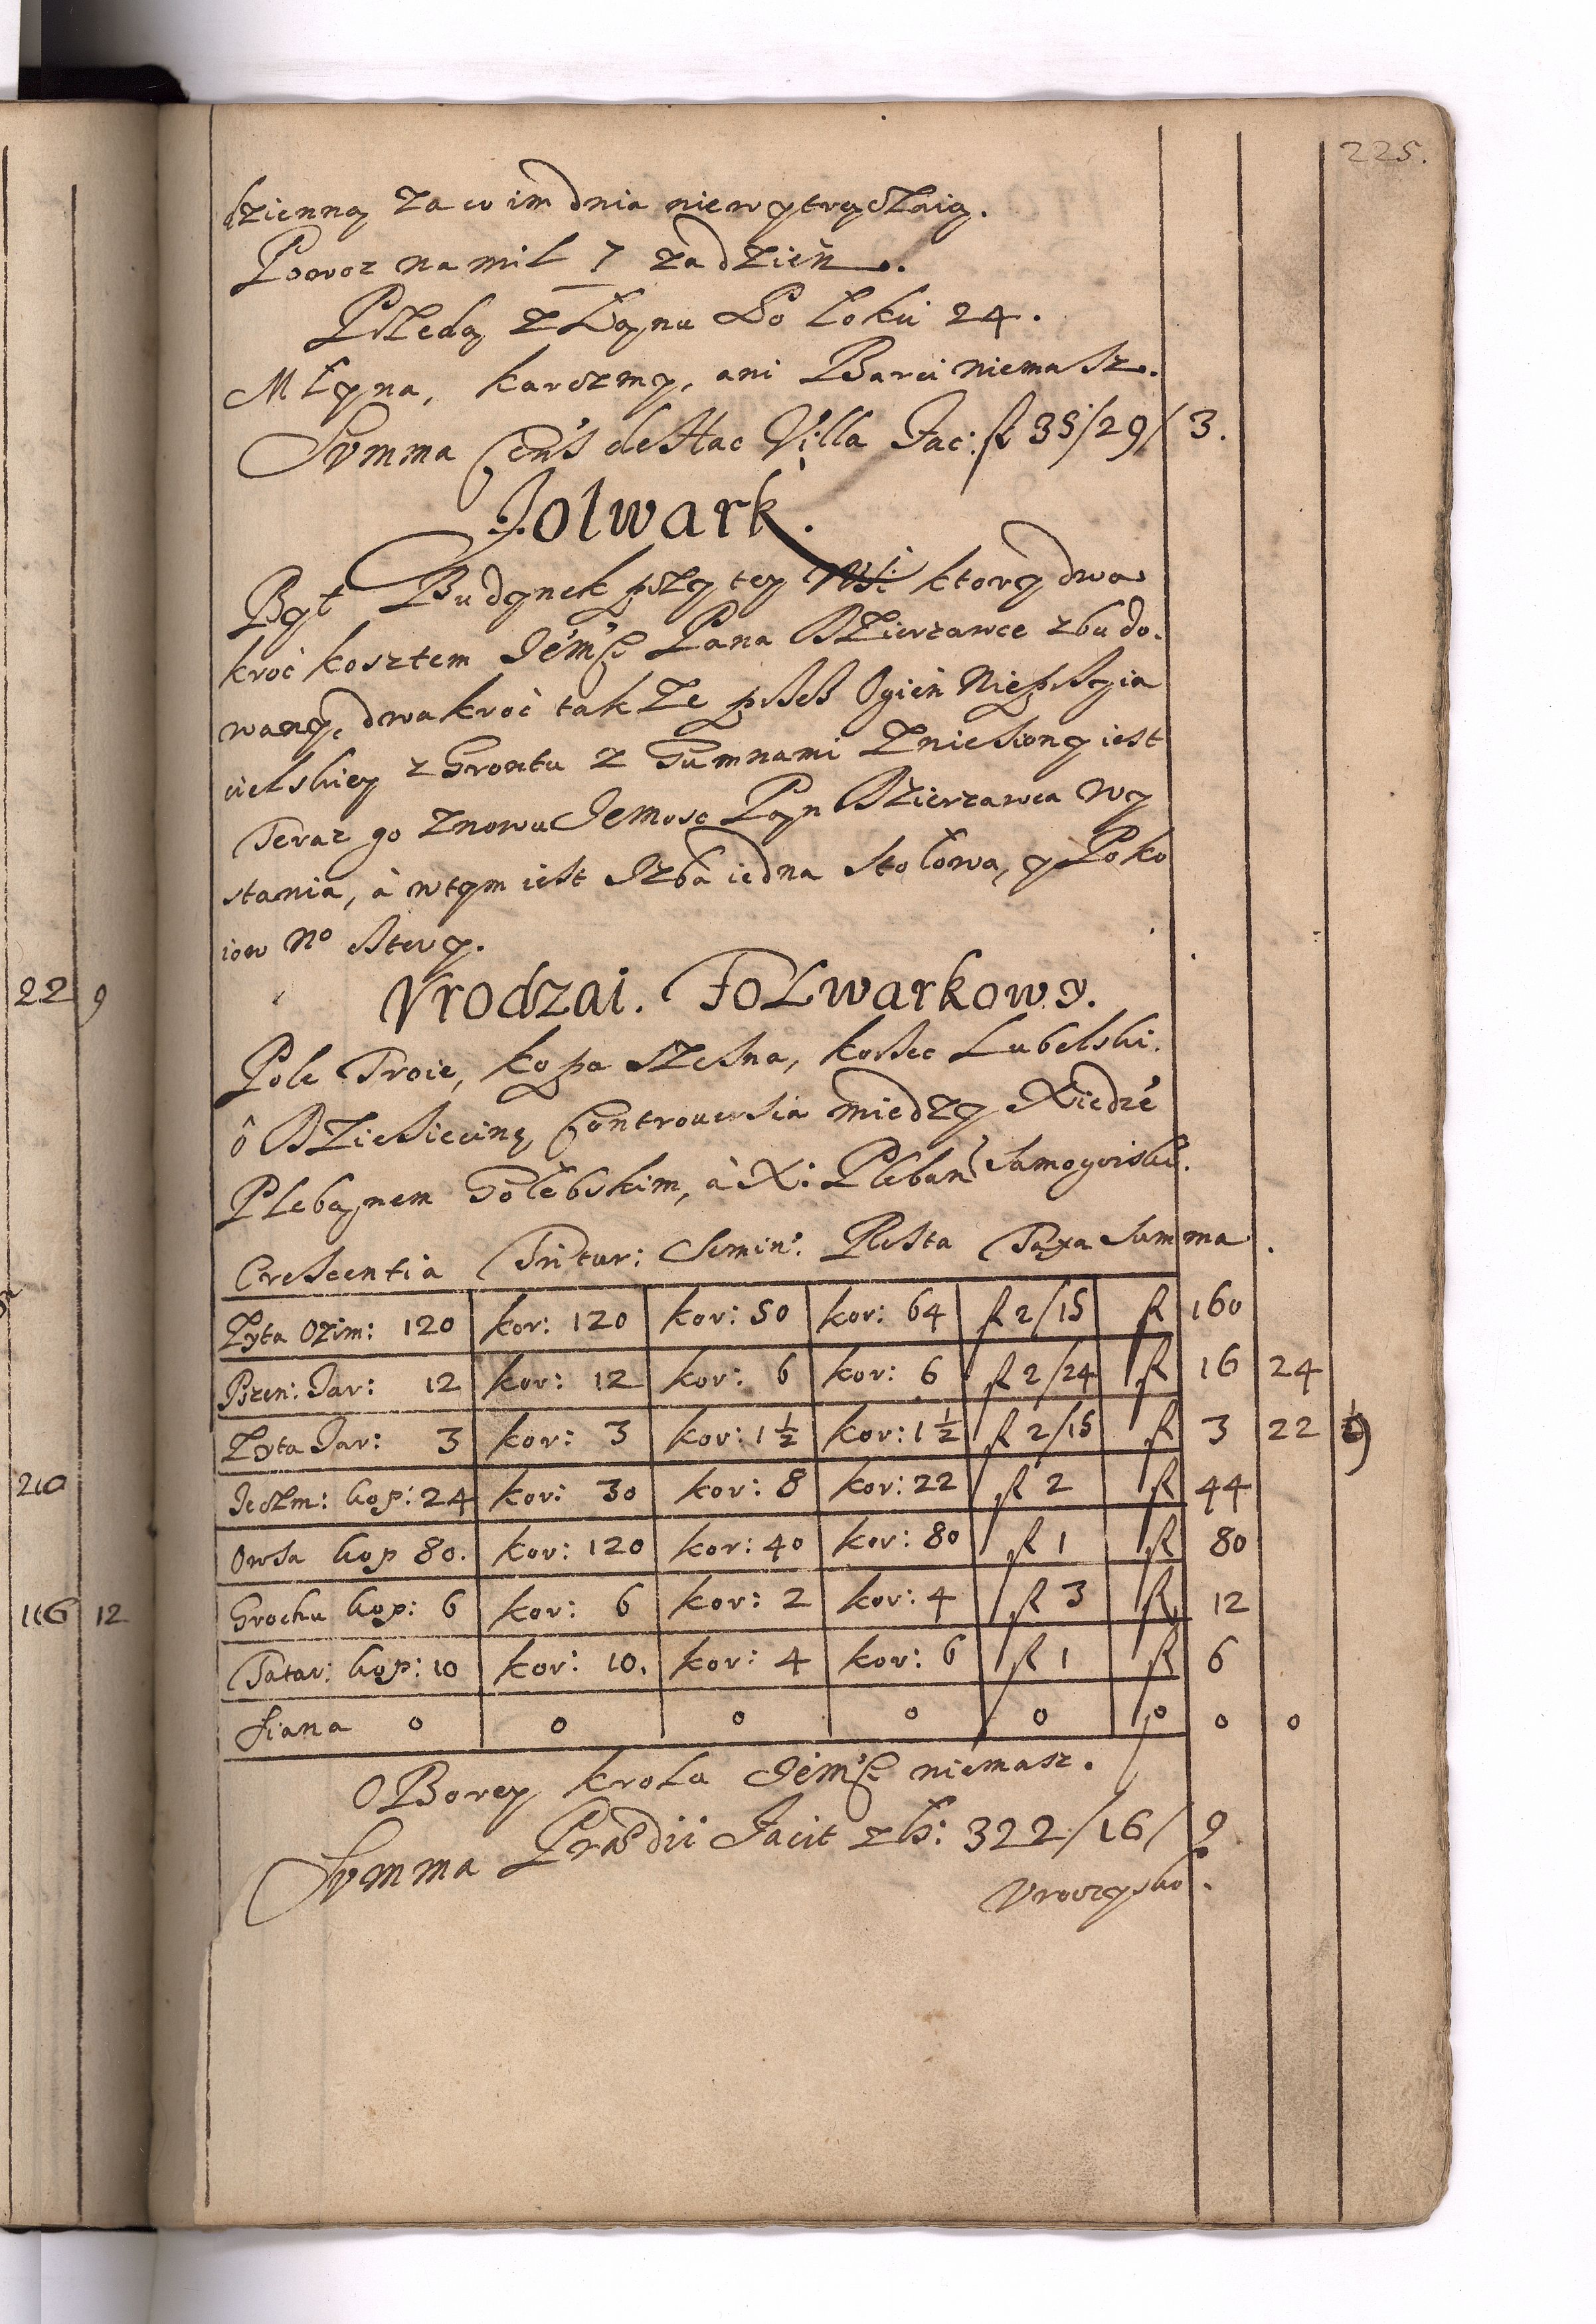 225.
dzienną za co im dnia niewytrączaią.
Powoz na mil 7 za dzień.
Przedą z Łanu Po Łokci 24.
Młyna, karczmy, ani Barci niemasz.
Summa Cens de Hac Villa Fac: fl 35/29/3.
Folwark.
Był Budynek przy tey Wsi ktory dwa
kroć kosztem Jemści Pana Dzierzawce zbudo.
wany, dwakroć takze przez Ogień Nieprzyia
cielskiey z Grontu z Gumnami Zniesiony iest
Teraz go znowu Jemosc Pan Dzierzawca wy
stania, à wtym iest Izba iedna stołowa, y Poko
iow No cztery.
Vrodzai. Folwarkowy.
Pole Troie, kopa szesna, korzec Lubelski.
ô Dziesiecinę Controuersia miedzy Xiedzé
Plebanem Gołębskim, à X: Pleban Samogoiski.
Crescentia Tritur: Semin: Resta Taxa Summa.
Zyta Ozim: 120 kor: 120 kor: 50 kor: 64 fl 2/15 fl 160
Pszen: Jar: 12 kor: 12 kor: 6 kor: 6 fl 2/24 fl 16 24
Zyta Jar: 3 kor: 3 kor: 1½ kor: 1½ fl 2/15 fl 3 22 9
Jeczm: kop: 24 kor: 30 kor: 8 kor: 22 fl 2 fl 44
Owsa kop 80. kor: 120 kor: 40 kor: 80 fl 1 fl 80
Grochu kop: 6 kor: 6 kor: 2 kor: 4 fl 3 fl 12
Tatar: kop: 10 kor: 10. kor: 4 kor: 6 fl 1 fl 6
Siana 0 0 0 0 0 0 0 0
OBorey krola Jemści niemasz.
Summa Prædii Facit zł: 322/16/9
Vroczysko.
22 9
210
116 12